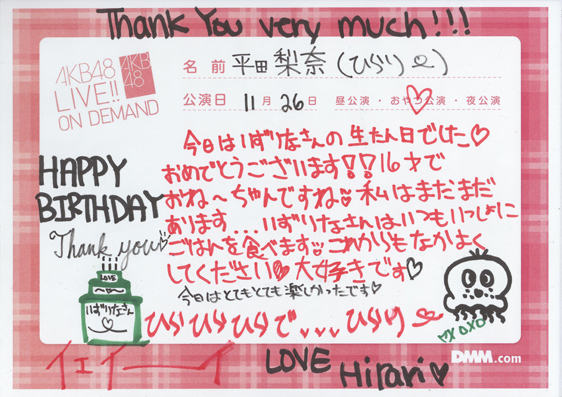 Thank You very much!!!
AKB48
LIVE!!
ON DEMAND
AKB
48
名前 平田 梨奈 (ひらりー)
公演日 11月 26日 昼公演・おやつ公演・夜公演
今日はいずりなさんの生たん日でした♡
おめでとうございます!!16才で
おね〜ちゃんですね♡私はまだまだ
あります...いずりなさんはいつもいっしょに
ごはんを食べます♡これからもなかよく
してください♡大好きです♡
今日はとてもとても楽しかったです♡
HAPPY
BIRTHDAY
Thank you♡
LOVE
いずりなさん
ひらひらひらで、、、ひらりー
XOXO
イエイーイ
LOVE Hirari♡
DMM.com